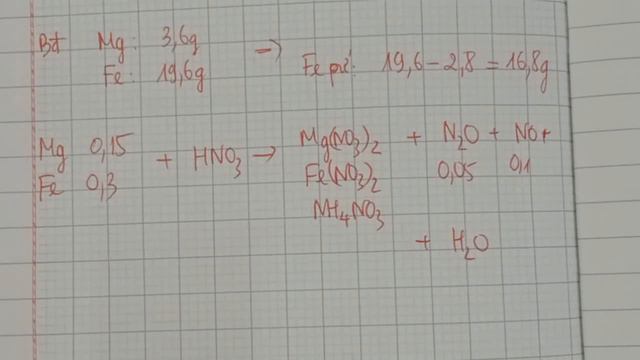 Bđ Mg: 3,6g
Fe: 19,6g → Fe pứ: 19,6 - 2,8 = 16,8g
Mg 0,15 + HNO3 → Mg(NO3)2 + N2O + NO +
Fe 0,3 Fe(NO3)2 0,05 0,1
NH4NO3
+ H2O